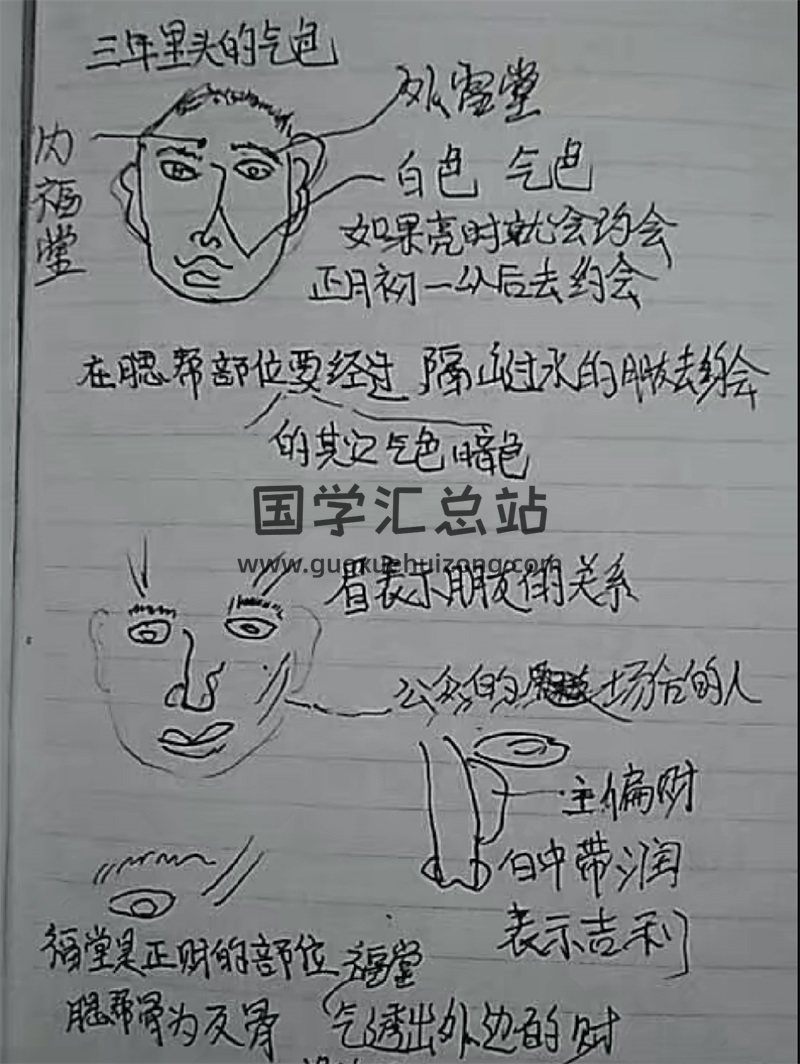 三年里头的气色
外福堂
内福堂
白色 气色
如果亮时就会约会
正月初一以后去约会
在腮帮部位要经过 隔山过水的朋友去约会
的其它气色暗色
国学汇总站
www.guoxuehuizong.com
眉表示朋友的关系
公众的场合的人
主偏财
白中带润
表示吉利
福堂是正财的部位 福堂
腮帮骨为反骨 气透出外边的财